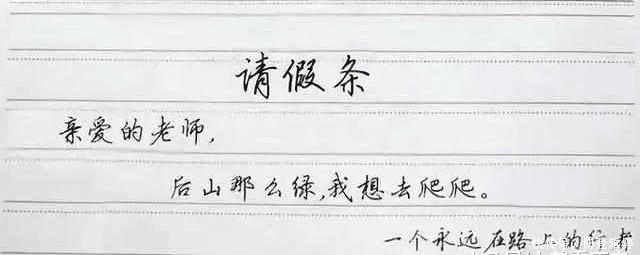 请假条
亲爱的老师，
后山那么绿，我想去爬爬。
一个永远在路上的行者